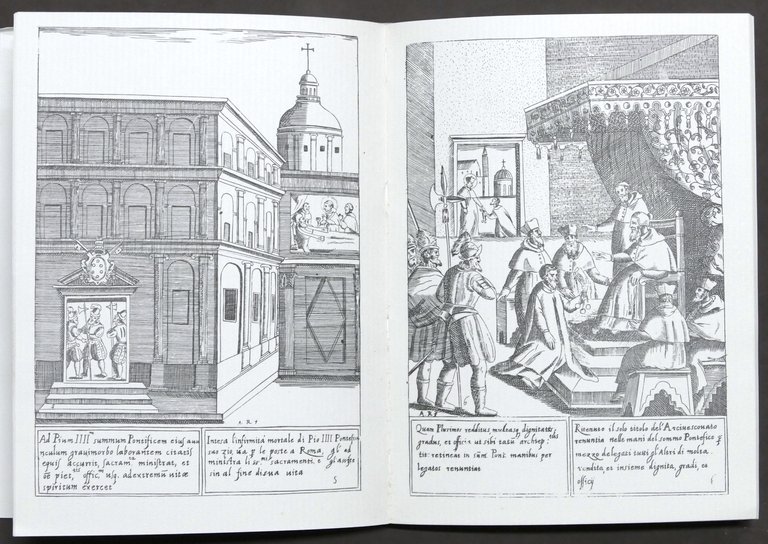 A. R. F
Ad Pium IIII.m summum Pontificem eius auu
nculum grauimorbo laborantem citatis
equis accurrit, sacram.ta ministrat, et
oẽ piet.tis offic.m usq. adextremũ uitæ
spiritum exercet
Intesa l'infirmità mortale di Pio IIII Pontefice
suo zio, ua p le poste a Roma, gl' ad
ministra li s.mi sacramenti, e gl' assiste
sin al fine di sua uita
5
A.R.F
Quam Plurimos redditus, dignitates,
gradus, et officia ut sibi archiep.tus
tit: retineat in sũm. Pont. manibus per
legatos renuntiat
Ritenuto il solo titolo del'Arciuescouato
renuntia nelle mani del sommo Pontefice p
mezzo delegati tutti gl' Altri di molta
rendita, et insieme dignità, gradi, et
officij
6